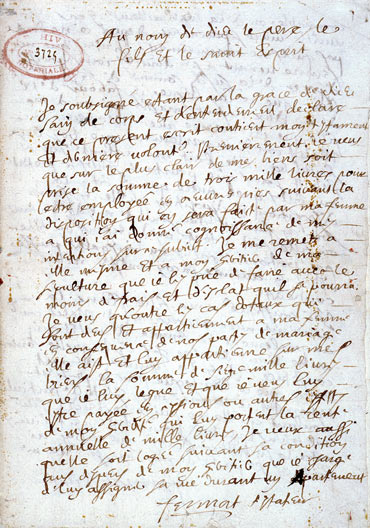 3725
Au nom de dieu le pere, le
fils et le saint esprit
Je soubsigne estant par la grace de dieu
sain de corps et d'entendement declare
que ce present escrit contient mon testament
et derniere volonté. Premierement je veux
que sur le plus clair de mes biens soit
prise la somme de trois mille livres pour
estre employée en œuvres pies suivant la
disposition qui en sera fait par ma femme
a qui j'ai donné cognoissance de mes
intentions sur ce subiect. Je me remets a
elle mesme et a mon heritier de ma
sepulture que je les prie de faire avec le
moins de frais et d'esclat qu'il se pourra
Je veux qu'outre les cas dotaux qui
sont deus et appartienent a ma femme
en consequence de nos pactes de mariage
elle ait et luy appartienne sur mes
biens la somme de sept mille livres
que je luy legue et que je veux luy
estre payée en ou autres effets
de mon heredité qui luy portent la rente
annuelle de mille livres, Je veux aussi
quelle soit logée suivant sa condition
aux despens de mon heritier que je charge
de luy assigner sa vie durant un Apartement
fermat